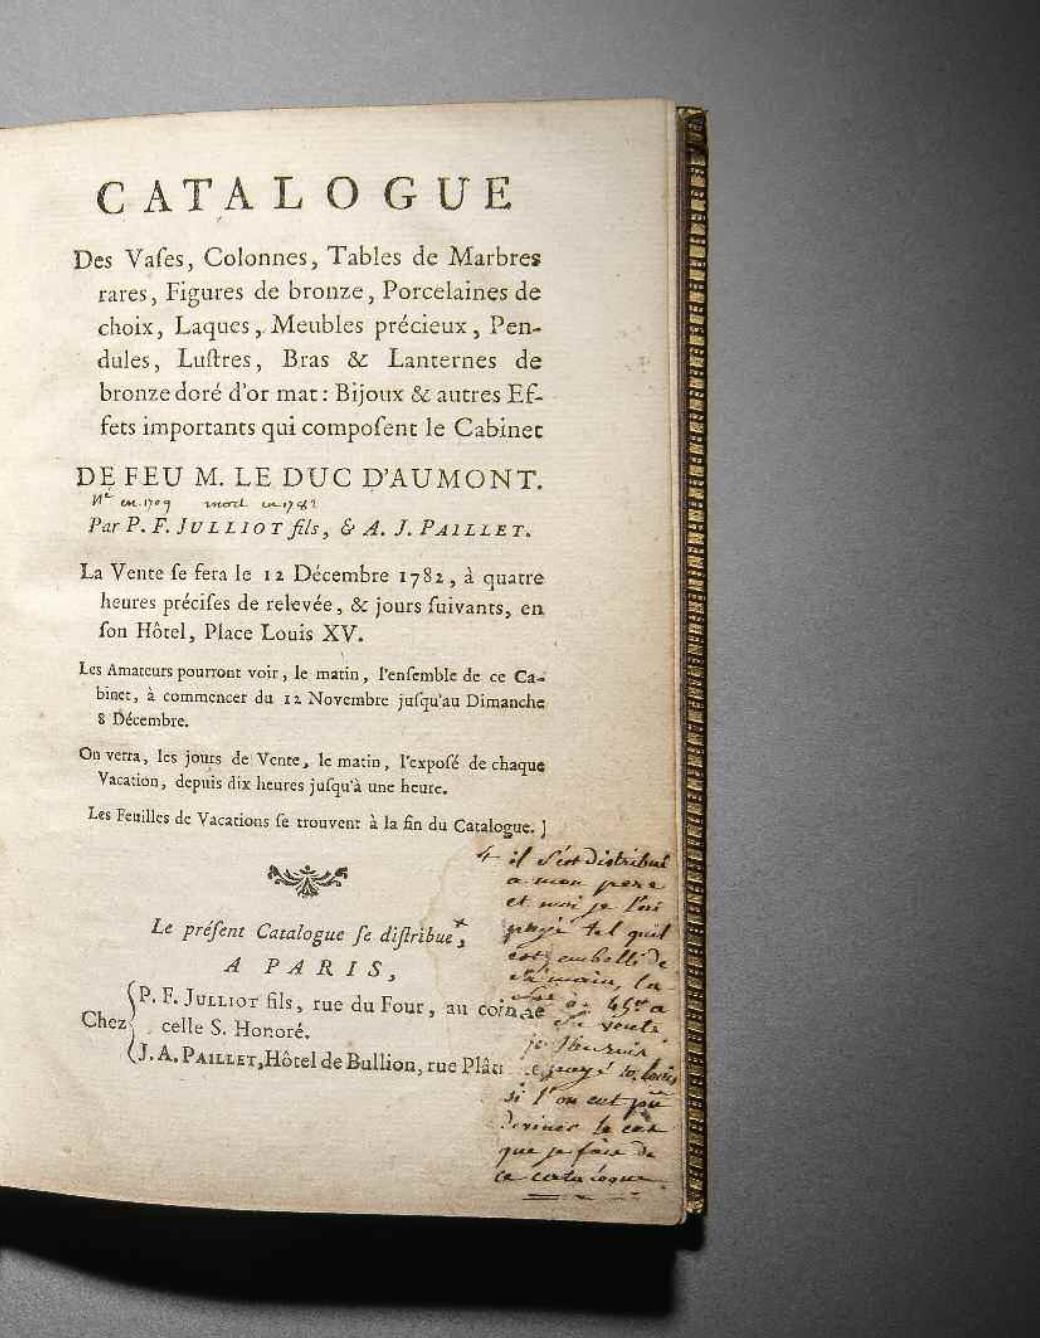 CATALOGUE
Des Vaſes, Colonnes, Tables de Marbres
rares, Figures de bronze, Porcelaines de
choix, Laques, Meubles précieux, Pen-
dules, Luſtres, Bras & Lanternes de
bronze doré d'or mat : Bijoux & autres Ef-
fets importants qui compoſent le Cabinet
DE FEU M. LE DUC D'AUMONT.
Né en 1709 mort en 1782
Par P. F. JULLIOT fils, & A. J. PAILLET.
La Vente ſe fera le 12 Décembre 1782, à quatre
heures préciſes de relevée, & jours ſuivants, en
ſon Hôtel, Place Louis XV.
Les Amateurs pourront voir, le matin, l'enſemble de ce Ca-
binet, à commencer du 12 Novembre juſqu'au Dimanche
8 Décembre.
On verra, les jours de Vente, le matin, l'expoſé de chaque
Vacation, depuis dix heures juſqu'à une heure.
Les Feuilles de Vacations ſe trouvent à la fin du Catalogue. ]
Le préſent Catalogue ſe diſtribue+,
A PARIS,
Chez
P. F. JULLIOT fils, rue du Four, au coin de
celle S. Honoré.
J. A. PAILLET, Hôtel de Bullion, rue Plât
+ il s'est distribué
a mon pere
et moi je l'ai
payé tel quil
est embelli de
sa main, la
a
sa vente
je
payé 10 louis
si l'on eut pu
deviner le cas
que je fais de
ce catalogue.